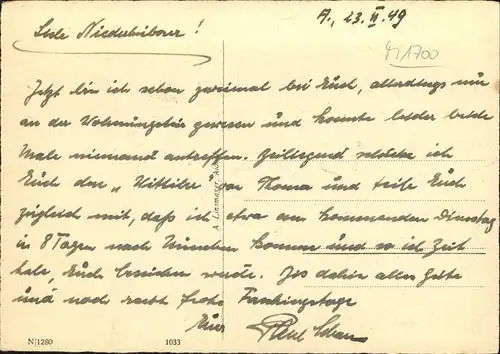 A., 23. II. 49
Liebe Niederhuber !
M 1700
Jetzt bin ich schon zweimal bei Euch, allerdings nur
an der Wohnungstür gewesen und konnte leider beide
Male niemand antreffen. Beiliegend schicke ich
Euch den „ von Thoma und teile Euch
zugleich mit, daß ich etwa am kommenden Dienstag
in 8 Tagen nach München komme und so ich Zeit
habe, Euch besuchen werde. Bis dahin alles Gute
und noch recht frohe Faschingstage
Euer
A. Linsmayer,
N 1280 1033